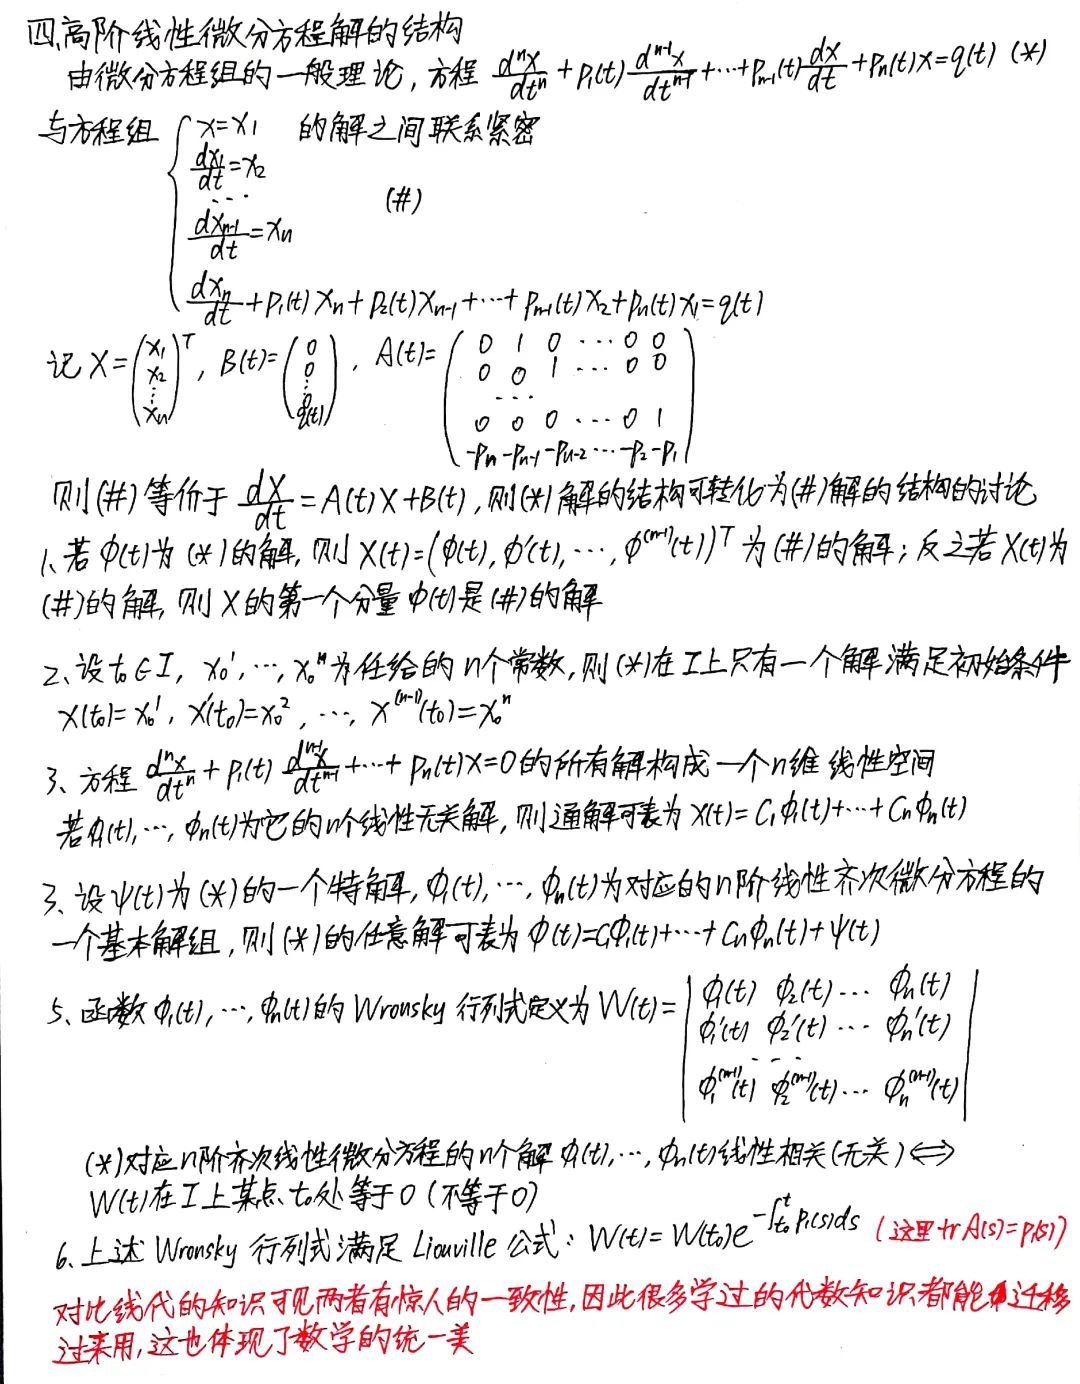 四、高阶线性微分方程解的结构
由微分方程组的一般理论, 方程 dⁿx/dtⁿ + p₁(t) dⁿ⁻¹x/dtⁿ⁻¹ + ⋯ + pₙ₋₁(t) dx/dt + pₙ(t)x = q(t) (*)
与方程组 { x = x₁ 的解之间联系紧密
dx₁/dt = x₂
⋯ (#)
dxₙ₋₁/dt = xₙ
dxₙ/dt + p₁(t)xₙ + p₂(t)xₙ₋₁ + ⋯ + pₙ₋₁(t)x₂ + pₙ(t)x₁ = q(t)
记 X = (x₁ x₂ ⋮ xₙ)ᵀ, B(t) = (0 0 ⋮ q(t)), A(t) = ( 0 1 0 ⋯ 0 0
0 0 1 ⋯ 0 0
⋯
0 0 0 ⋯ 0 1
-pₙ -pₙ₋₁ -pₙ₋₂ ⋯ -p₂ -p₁ )
则(#)等价于 dX/dt = A(t)X + B(t), 则(*)解的结构可转化为(#)解的结构的讨论
1、若 φ(t)为(*)的解, 则 X(t) = (φ(t), φ'(t), ⋯, φ⁽ⁿ⁻¹⁾(t))ᵀ 为(#)的解; 反之若X(t)为
(#)的解, 则X的第一个分量φ(t)是(#)的解
2、设t₀∈I, x₀¹, ⋯, x₀ⁿ为任给的n个常数, 则(*)在I上只有一个解满足初始条件
x(t₀) = x₀¹, x'(t₀) = x₀², ⋯, x⁽ⁿ⁻¹⁾(t₀) = x₀ⁿ
3、方程 dⁿx/dtⁿ + p₁(t) dⁿ⁻¹x/dtⁿ⁻¹ + ⋯ + pₙ(t)x = 0的所有解构成一个n维线性空间
若φ₁(t), ⋯, φₙ(t)为它的n个线性无关解, 则通解可表为 x(t) = C₁φ₁(t) + ⋯ + Cₙφₙ(t)
3、设ψ(t)为(*)的一个特解, φ₁(t), ⋯, φₙ(t)为对应的n阶线性齐次微分方程的
一个基本解组, 则(*)的任意解可表为 φ(t) = C₁φ₁(t) + ⋯ + Cₙφₙ(t) + ψ(t)
5、函数φ₁(t), ⋯, φₙ(t)的 Wronsky 行列式定义为 W(t) = | φ₁(t) φ₂(t) ⋯ φₙ(t)
φ₁'(t) φ₂'(t) ⋯ φₙ'(t)
⋯
φ₁⁽ⁿ⁻¹⁾(t) φ₂⁽ⁿ⁻¹⁾(t) ⋯ φₙ⁽ⁿ⁻¹⁾(t) |
(*)对应n阶齐次线性微分方程的n个解 φ₁(t), ⋯, φₙ(t)线性相关(无关) ⟺
W(t)在I上某点t₀处等于0 (不等于0)
6、上述 Wronsky 行列式满足 Liouville 公式: W(t) = W(t₀)e^(-∫ₜ₀ᵗ p₁(s)ds) (这里 tr A(s) = p₁(s))
对比线代的知识可见两者有惊人的一致性, 因此很多学过的代数知识都能迁移
过来用, 这也体现了数学的统一美